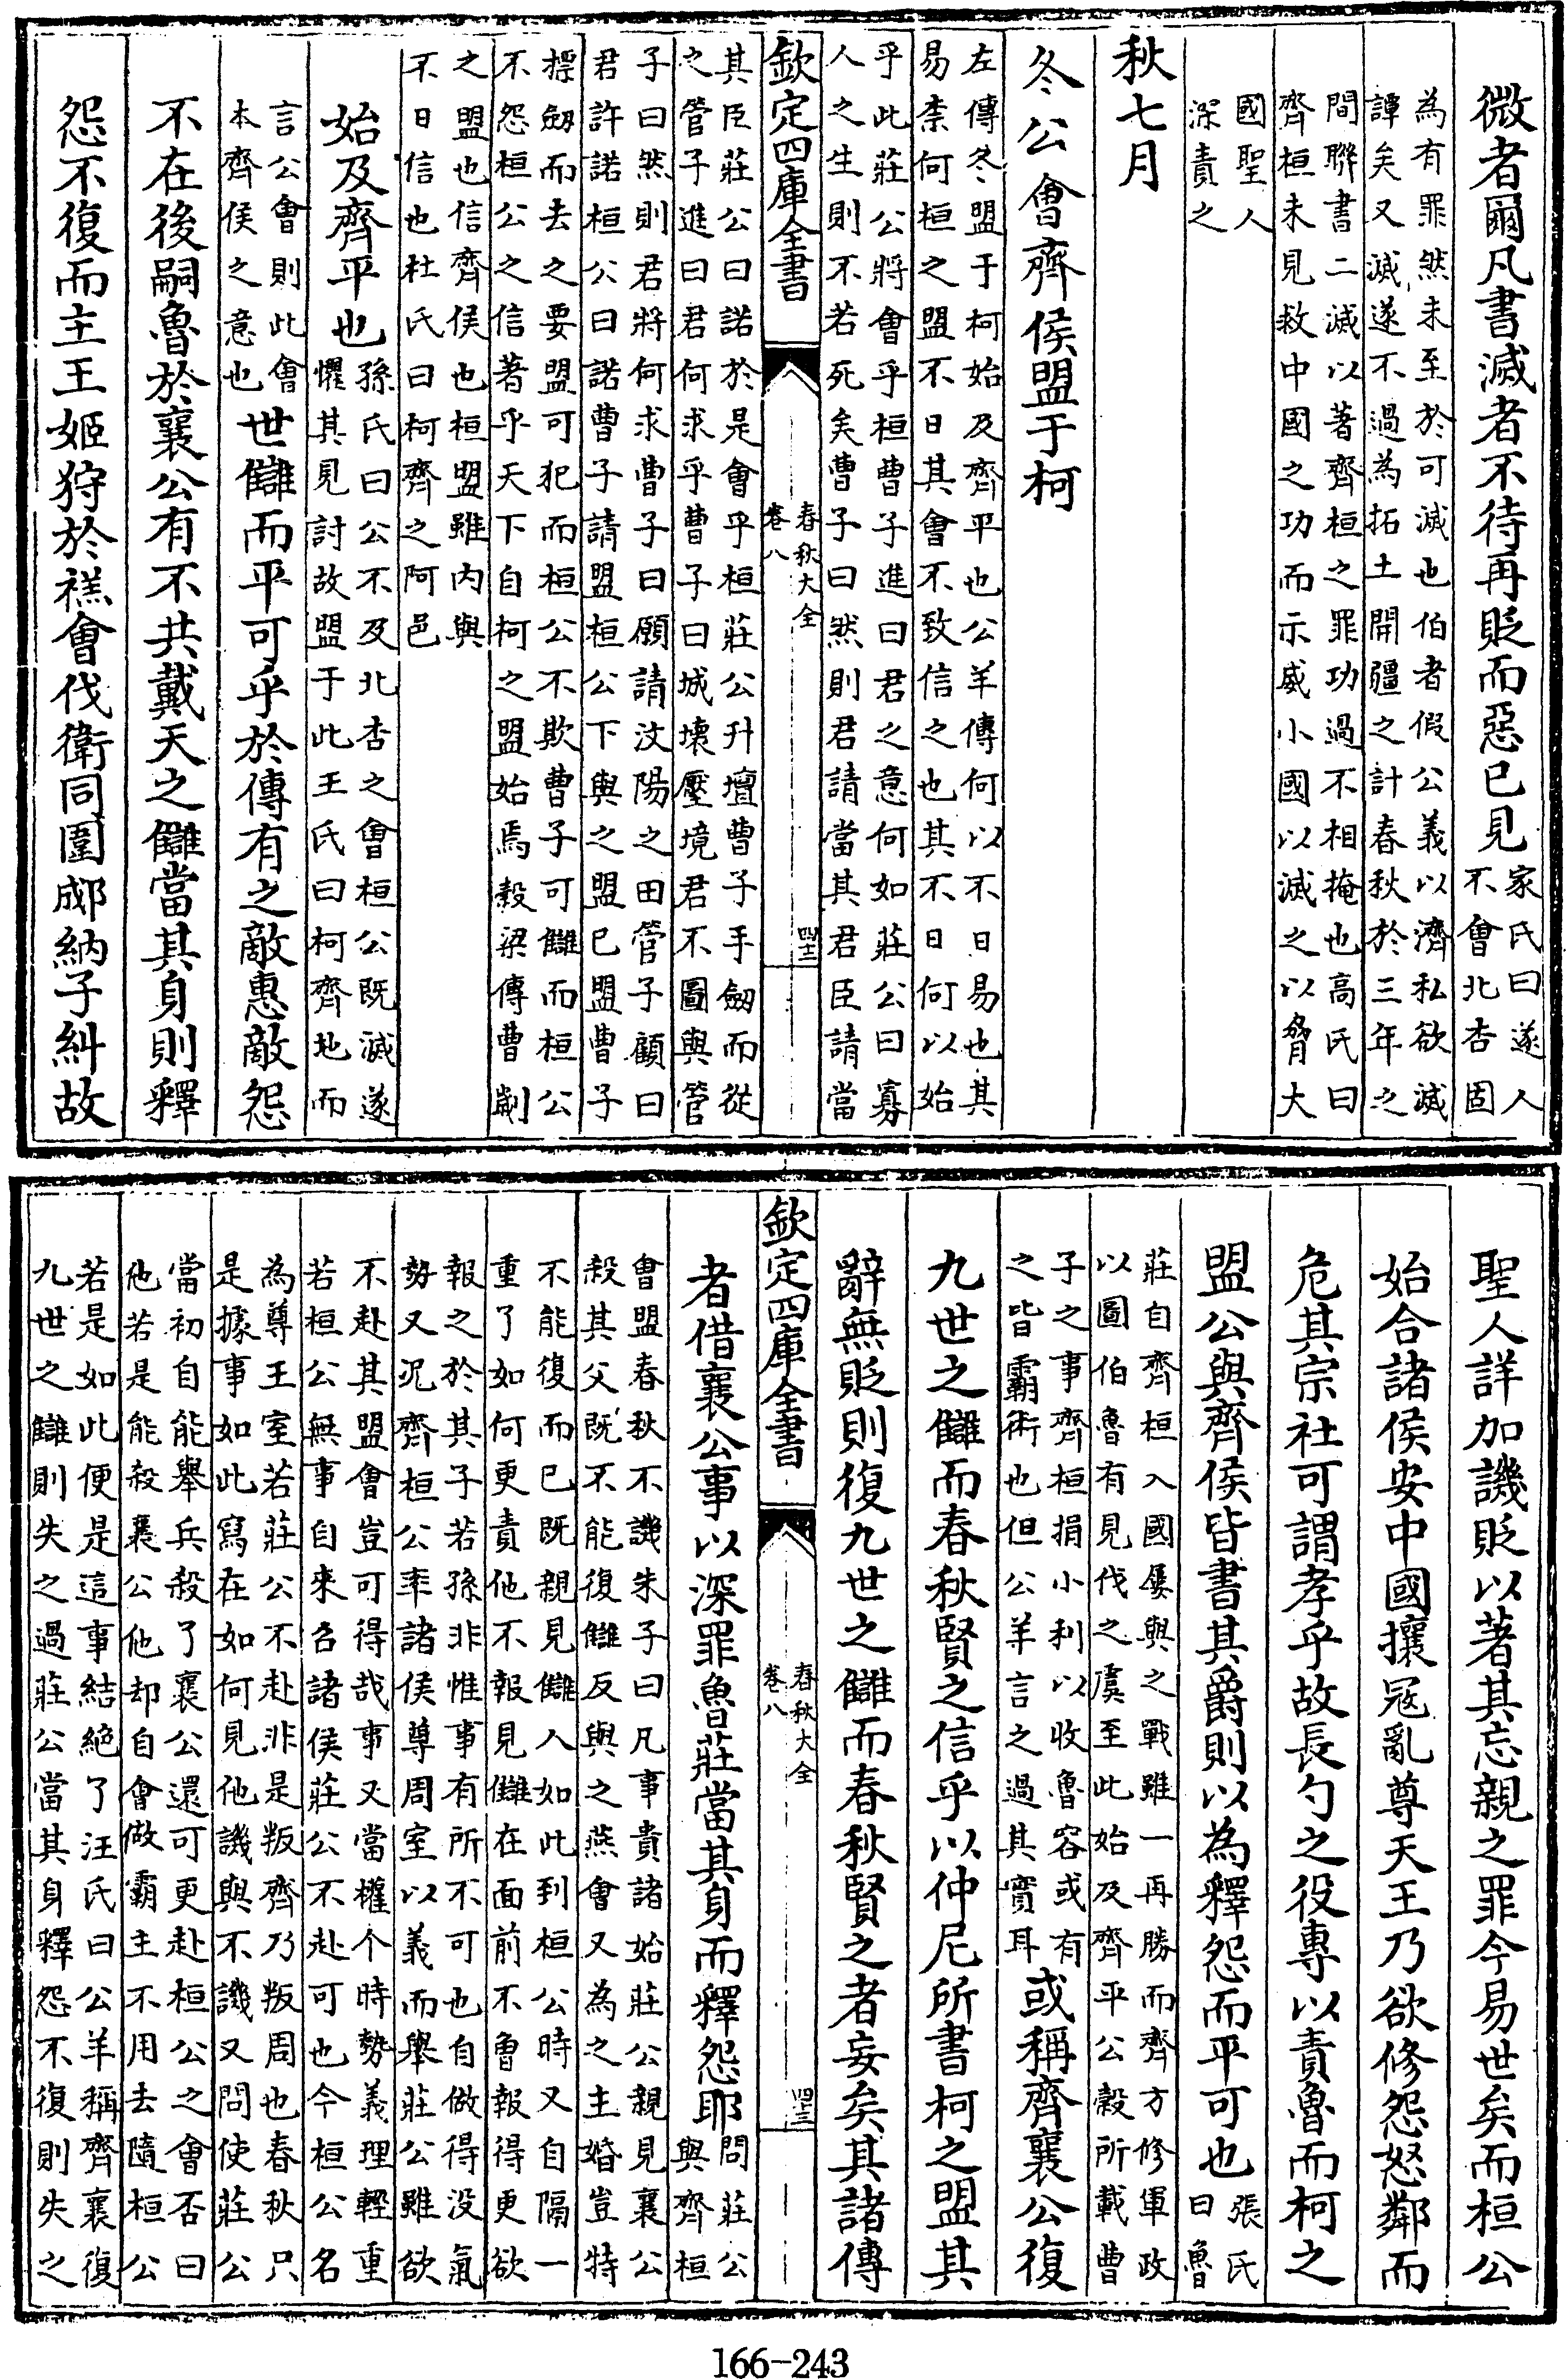 微者爾凡書滅者不待再貶而惡已見
家氏曰遂人
不會北杏固
為有罪然未至於可滅也伯者假公義以濟私欲滅
譚矣又滅遂不過為拓土開疆之計春秋於三年之
間聯書二滅以著齊桓之罪功過不相掩也高氏曰
齊桓未見救中國之功而示威小國以滅之以脅大
國聖人
深責之
秋七月
冬公會齊侯盟于柯
左傳冬盟于柯始及齊平也公羊傳何以不日易也其
易柰何桓之盟不日其會不致信之也其不日何以始
乎此莊公將會乎桓曹子進曰君之意何如莊公曰寡
人之生則不若死矣曹子曰然則君請當其君臣請當
欽定四庫全書
春秋大全
卷八
四十二
其臣莊公曰諾於是會乎桓莊公升壇曹子手劒而從
之管子進曰君何求乎曹子曰城壞壓境君不圖與管
子曰然則君將何求曹子曰願請汶陽之田管子顧曰
君許諾桓公曰諾曹子請盟桓公下與之盟已盟曹子
摽劒而去之要盟可犯而桓公不欺曹子可讎而桓公
不怨桓公之信著乎天下自柯之盟始焉穀梁傳曹劌
之盟也信齊侯也桓盟雖內與
不日信也杜氏曰柯齊之阿邑
始及齊平也
孫氏曰公不及北杏之會桓公既滅遂
懼其見討故盟于此王氏曰柯齊地而
言公會則此會
本齊侯之意也
世讎而平可乎於傳有之敵惠敵怨
不在後嗣魯於襄公有不共戴天之讎當其身則釋
怨不復而主王姬狩於禚會伐衛同圍郕納子糾故
聖人詳加譏貶以著其忘親之罪今易世矣而桓公
始合諸侯安中國攘寇亂尊天王乃欲修怨怒鄰而
危其宗社可謂孝乎故長勺之役專以責魯而柯之
盟公與齊侯皆書其爵則以為釋怨而平可也
張氏
曰魯
莊自齊桓入國屢與之戰雖一再勝而齊方修軍政
以圖伯魯有見伐之虞至此始及齊平公穀所載曹
子之事齊桓捐小利以收魯容或有
之皆霸術也但公羊言之過其實耳
或稱齊襄公復
九世之讎而春秋賢之信乎以仲尼所書柯之盟其
辭無貶則復九世之讎而春秋賢之者妄矣其諸傳
欽定四庫全書
春秋大全
卷八
四十三
者借襄公事以深罪魯莊當其身而釋怨耶
問莊公
與齊桓
會盟春秋不譏朱子曰凡事貴諸始莊公親見襄公
殺其父既不能復讎反與之燕會又為之主婚豈特
不能復而已既親見讎人如此到桓公時又自隔一
重了如何更責他不報見讎在面前不曾報得更欲
報之於其子若孫非惟事有所不可也自做得没氣
勢又况齊桓公率諸侯尊周室以義而舉莊公雖欲
不赴其盟會豈可得哉事又當權个時勢義理輕重
若桓公無事自來召諸侯莊公不赴可也今桓公名
為尊王室若莊公不赴非是叛齊乃叛周也春秋只
是據事如此寫在如何見他譏與不譏又問使莊公
當初自能舉兵殺了襄公還可更赴桓公之會否曰
他若是能殺襄公他却自會做霸主不用去隨桓公
若是如此便是這事結絕了汪氏曰公羊稱齊襄復
九世之讎則失之過莊公當其身釋怨不復則失之
166-243